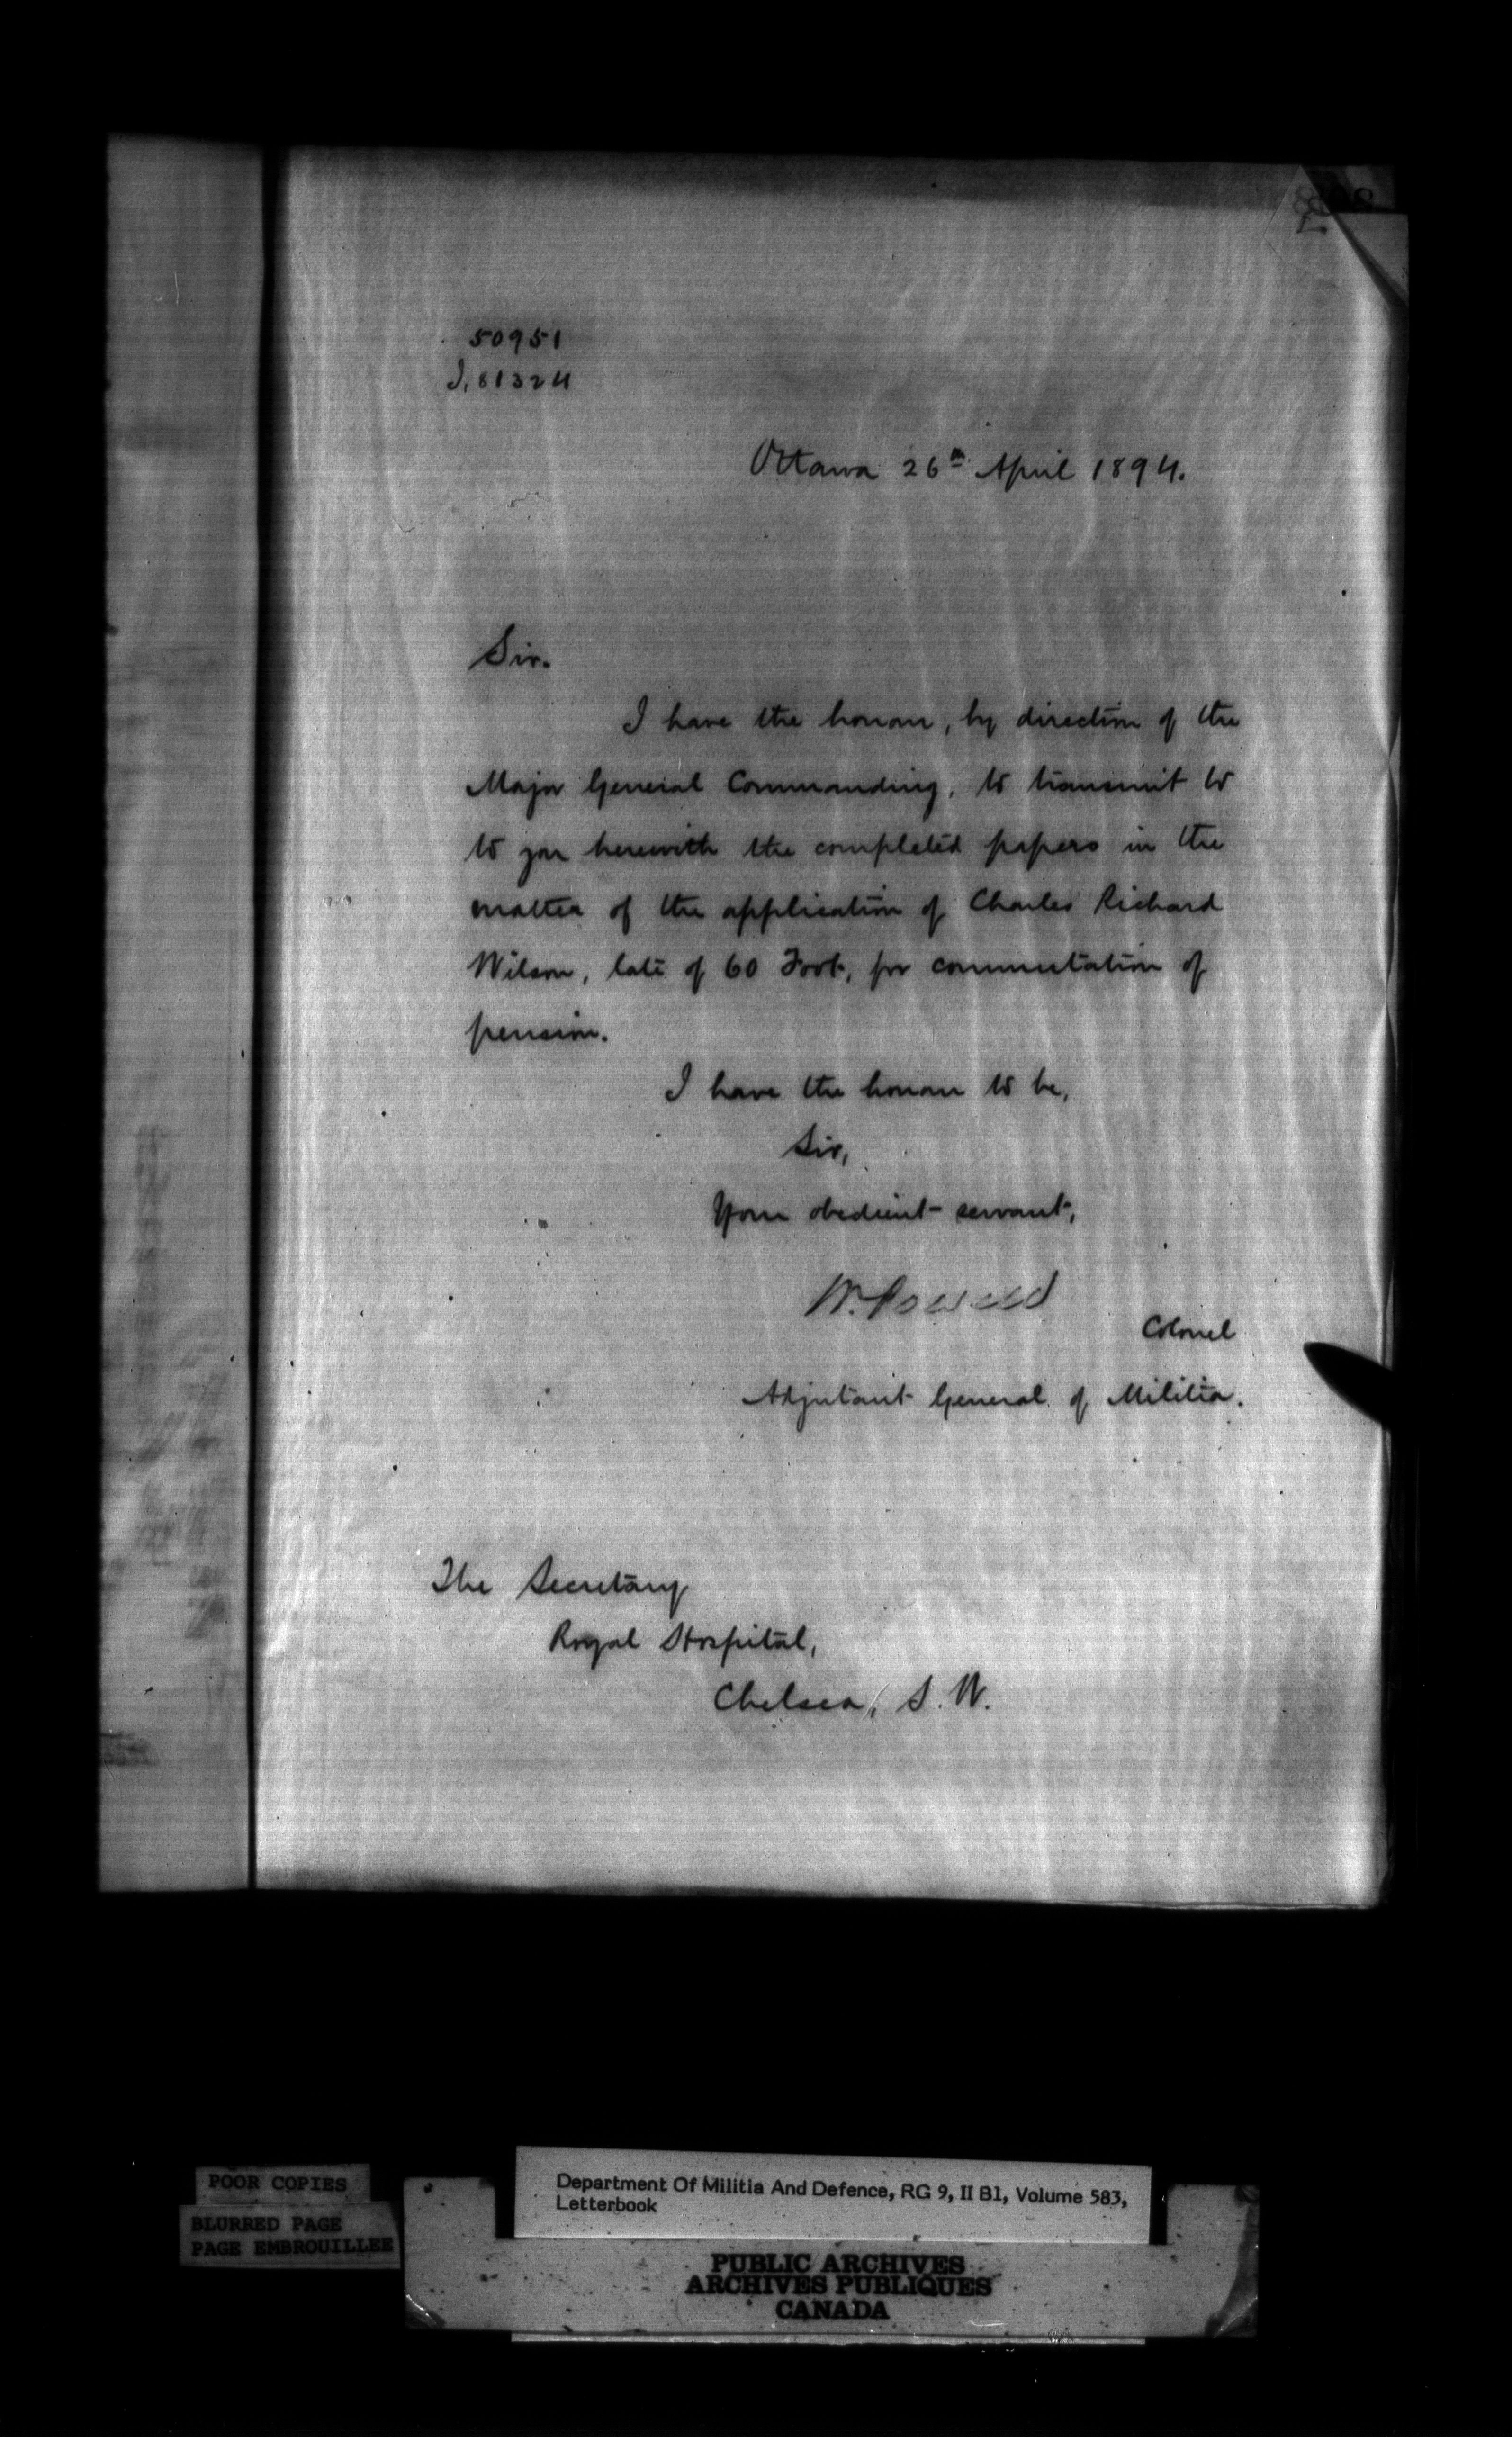 50951
J,81324
Ottawa 26th April 1894.
Sir.
I have the honour, by direction of the
Major General Commanding, to transmit to
to you herewith the completed papers in the
matter of the application of Charles Richard
Wilson, late of 60 Foot, for commutation of
pension.
I have the honour to be,
Sir,
Your obedient servant,
W. Powell
Colonel
Adjutant General of Militia.
The Secretary
Royal Hospital,
Chelsea, S.W.
POOR COPIES
BLURRED PAGE
PAGE EMBROUILLEE
Department Of Militia And Defence, RG 9, II B1, Volume 583,
Letterbook
PUBLIC ARCHIVES
ARCHIVES PUBLIQUES
CANADA